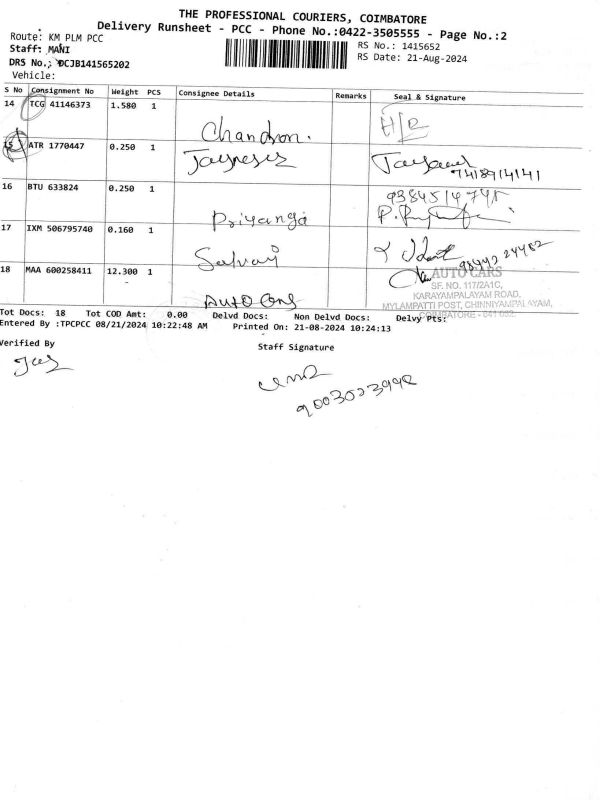 THE PROFESSIONAL COURIERS, COIMBATORE
Delivery Runsheet - PCC - Phone No.:0422-3505555 - Page No.:2
Route: KM PLM PCC
RS No.: 1415652
Staff: MANI
RS Date: 21-Aug-2024
DRS No.: DCJB141565202
Vehicle:
S No Consignment No Weight PCS Consignee Details Remarks Seal & Signature
14 TCG 41146373 1.580 1
Chandron.
15 ATR 1770447 0.250 1
74189 14141
16 BTU 633824 0.250 1
Priyanga
17 IXM 506795740 0.160 1
Selvaj
98442 24482
18 MAA 600258411 12.300 1
AUTO CARS
SF. NO. 117/2A1C,
KARAYAMPALAYAM ROAD,
MYLAMPATTI POST, CHINNIYAMPALAYAM,
COIMBATORE - 641 062
AUTO Cars
Tot Docs: 18 Tot COD Amt: 0.00 Delvd Docs: Non Delvd Docs: Delvy Pts:
Entered By :TPCPCC 08/21/2024 10:22:48 AM Printed On: 21-08-2024 10:24:13
Verified By
Staff Signature